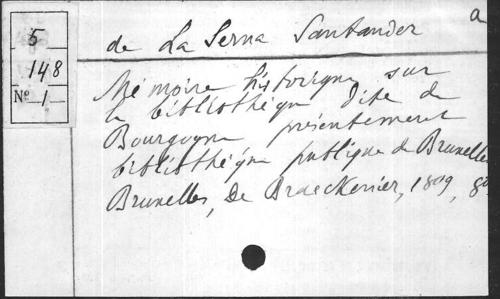 5
148
Nº 1
a
de La Serna Santander
Mémoire historique sur
la bibliothèque dite de
Bourgogne présentement
bibliothèque publique de Bruxelles
Bruxelles, De Braeckenier, 1809, 8º